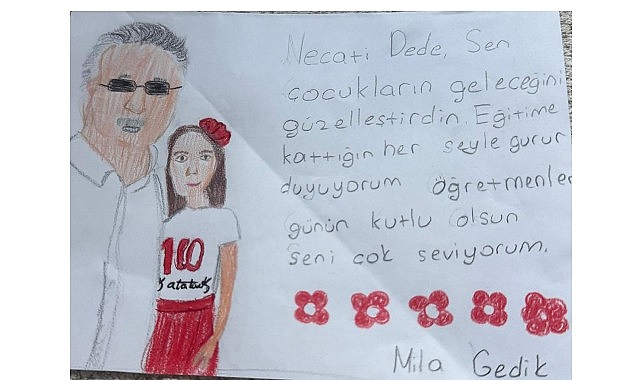 Necati Dede, Sen
çocukların geleceğini
güzelleştirdin. Eğitime
kattığın her şeyle gurur
duyuyorum öğretmenler
günün kutlu olsun
seni çok seviyorum.
100
K atatürk
Mila Gedik